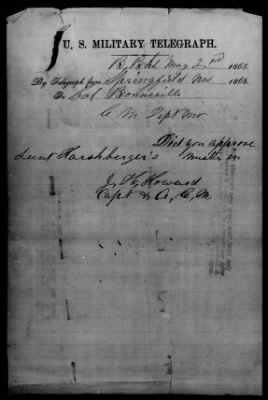 U. S. MILITARY TELEGRAPH.
B. Bks. May 2nd 1863.
By Telegraph from Springfield Mo 1863.
To Col Bonneville
C M Dept Mo
Did you approve
Lieut Harshberger's muster in
J. H. Howard
Capt & A. C. M.